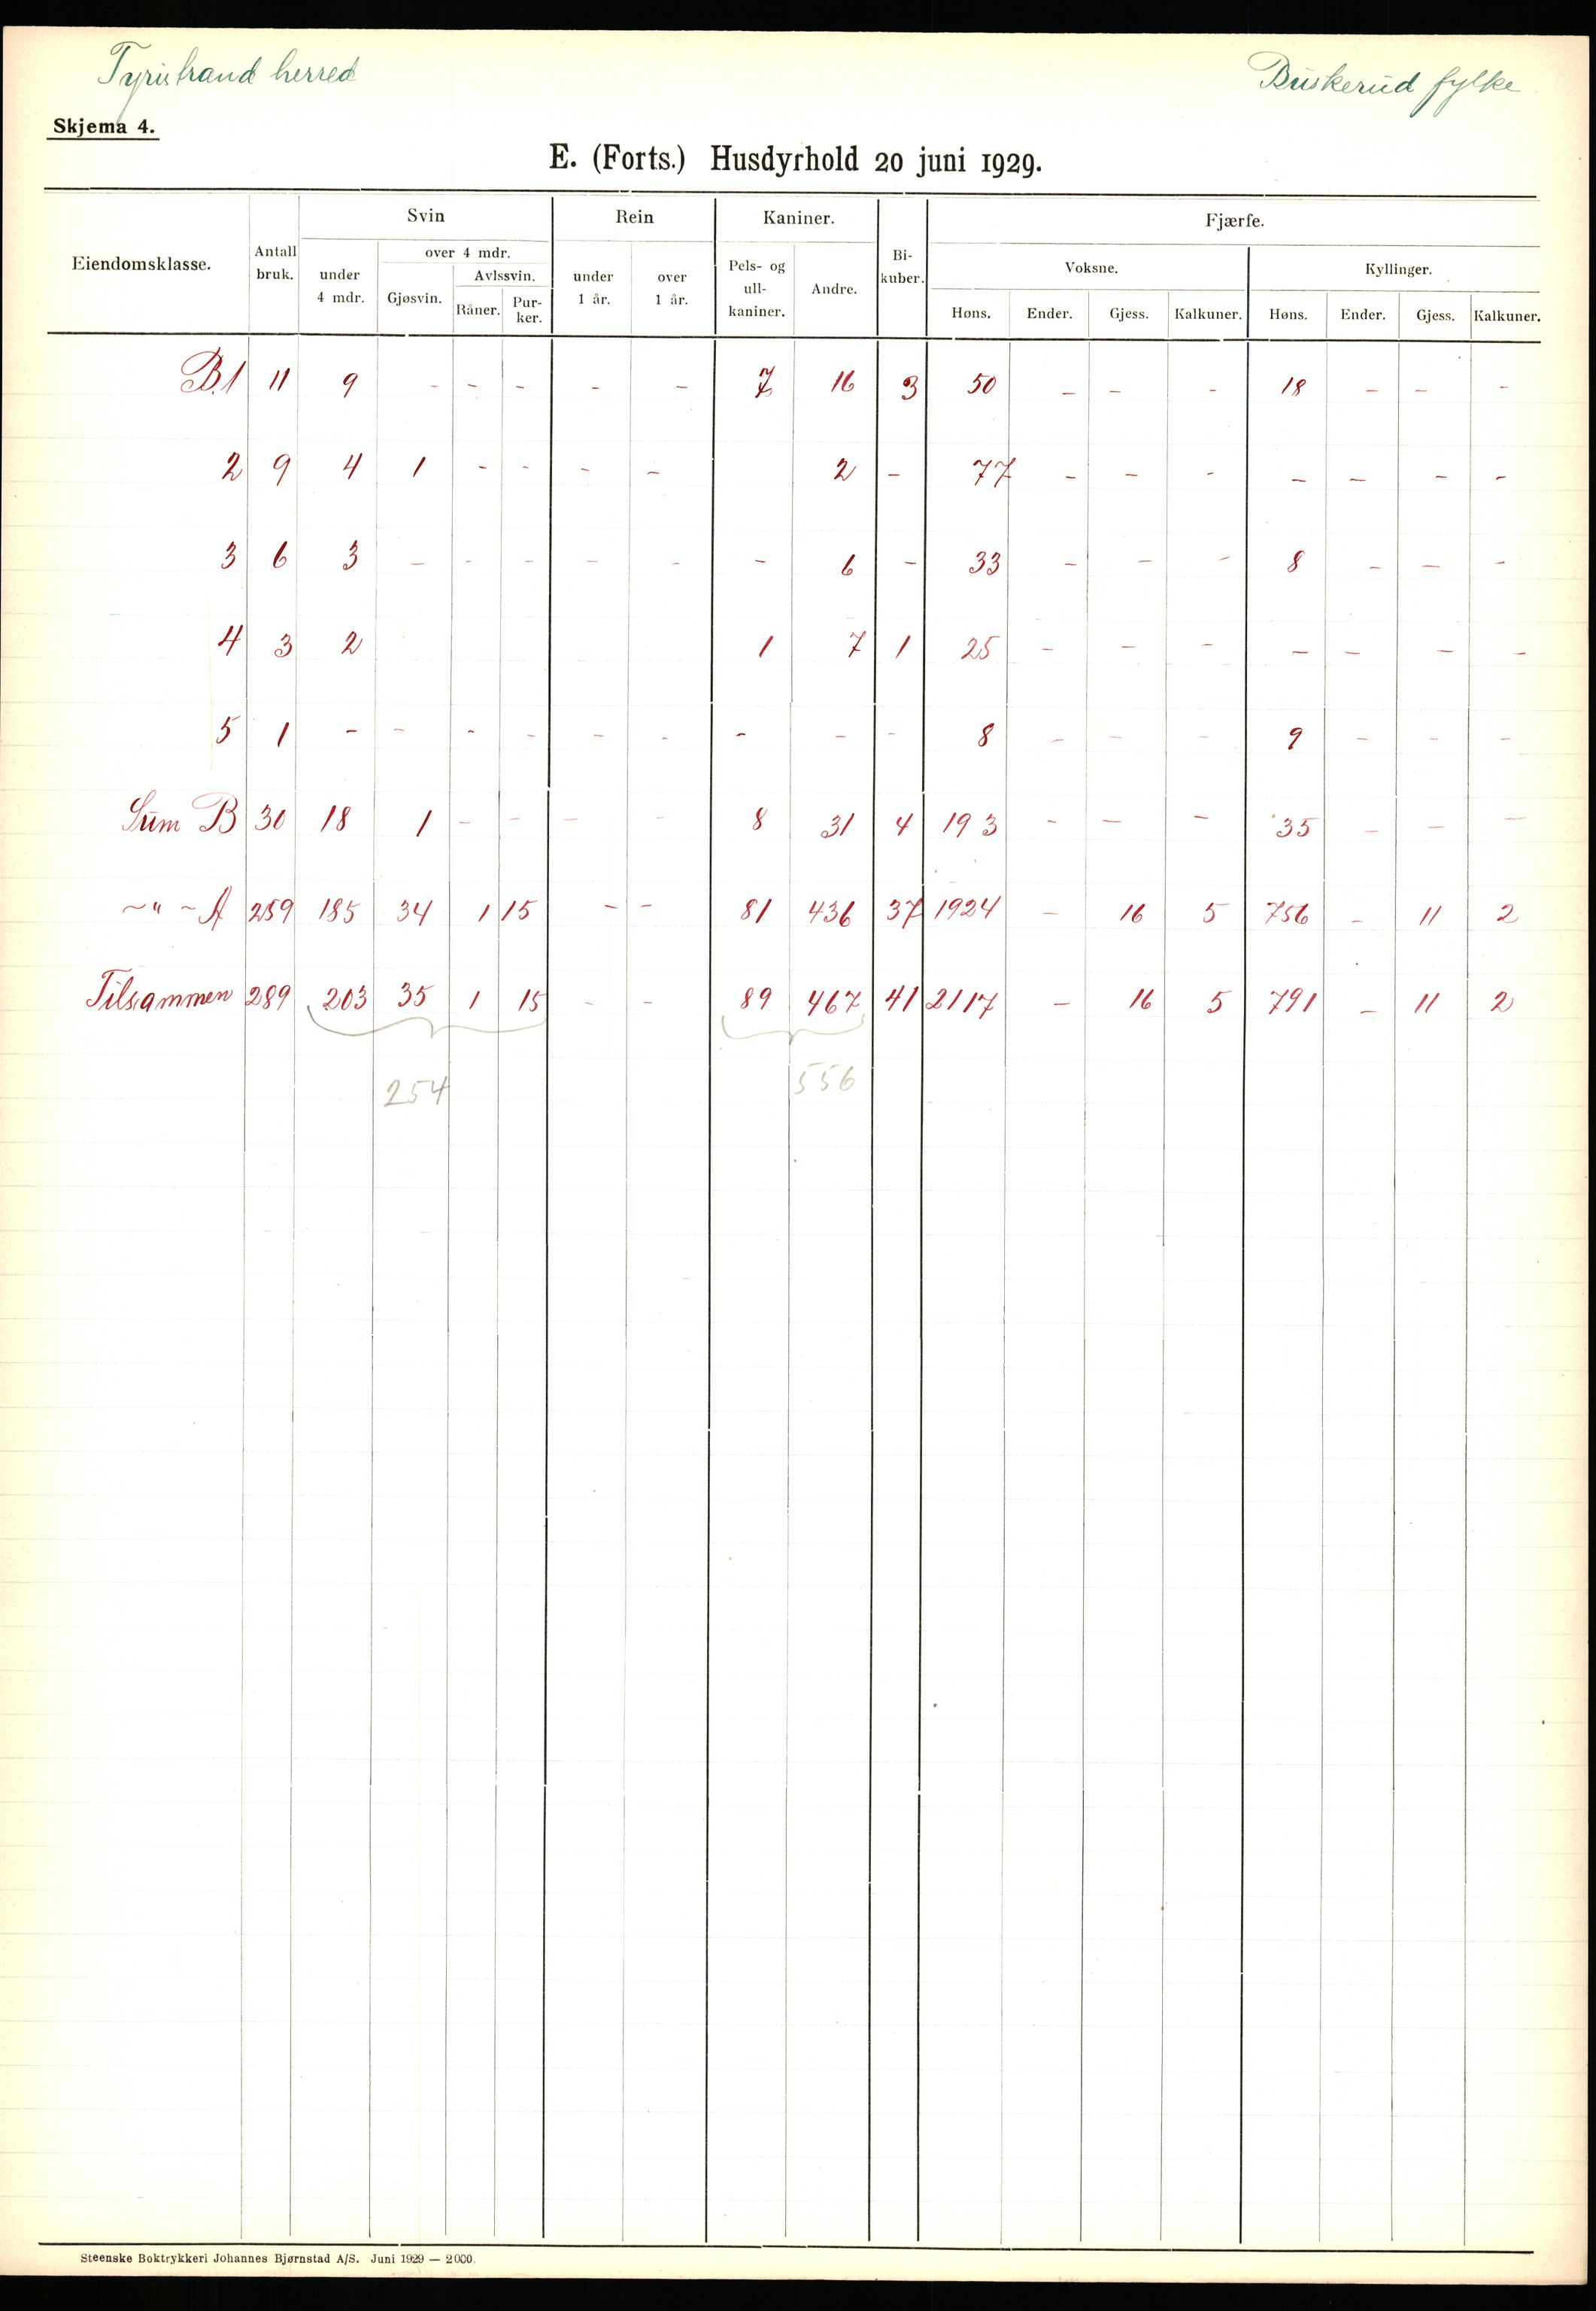 Tyristrand herred
Buskerud fylke
Skjema 4.
E. (Forts.) Husdyrhold 20 juni 1929.
Eiendomsklasse. Antall bruk. Svin Rein Kaniner. Bi-kuber. Fjærfe.
under 4 mdr. over 4 mdr. under 1 år. over 1 år. Pels- og ull-kaniner. Andre. Voksne. Kyllinger.
Gjøsvin. Avlssvin.
Råner. Pur-ker. Høns. Ender. Gjess. Kalkuner. Høns. Ender. Gjess. Kalkuner.
B.1 11 9 - - - - - 7 16 3 50 - - - 18 - - -
2 9 4 1 - - - - 2 - 77 - - - - - - -
3 6 3 - - - - - - 6 - 33 - - - 8 - - -
4 3 2 1 7 1 25 - - - - - - -
5 1 - - - - - - - - - 8 - - - 9 - - -
Sum B 30 18 1 - - - - 8 31 4 193 - - - 35 - - -
~ " ~ A 259 185 34 1 15 - - 81 436 37 1924 - 16 5 756 - 11 2
Tilsammen 289 203 35 1 15 - - 89 467 41 2117 - 16 5 791 - 11 2
254 556
Steenske Boktrykkeri Johannes Bjørnstad A/S. Juni 1929 — 2000.